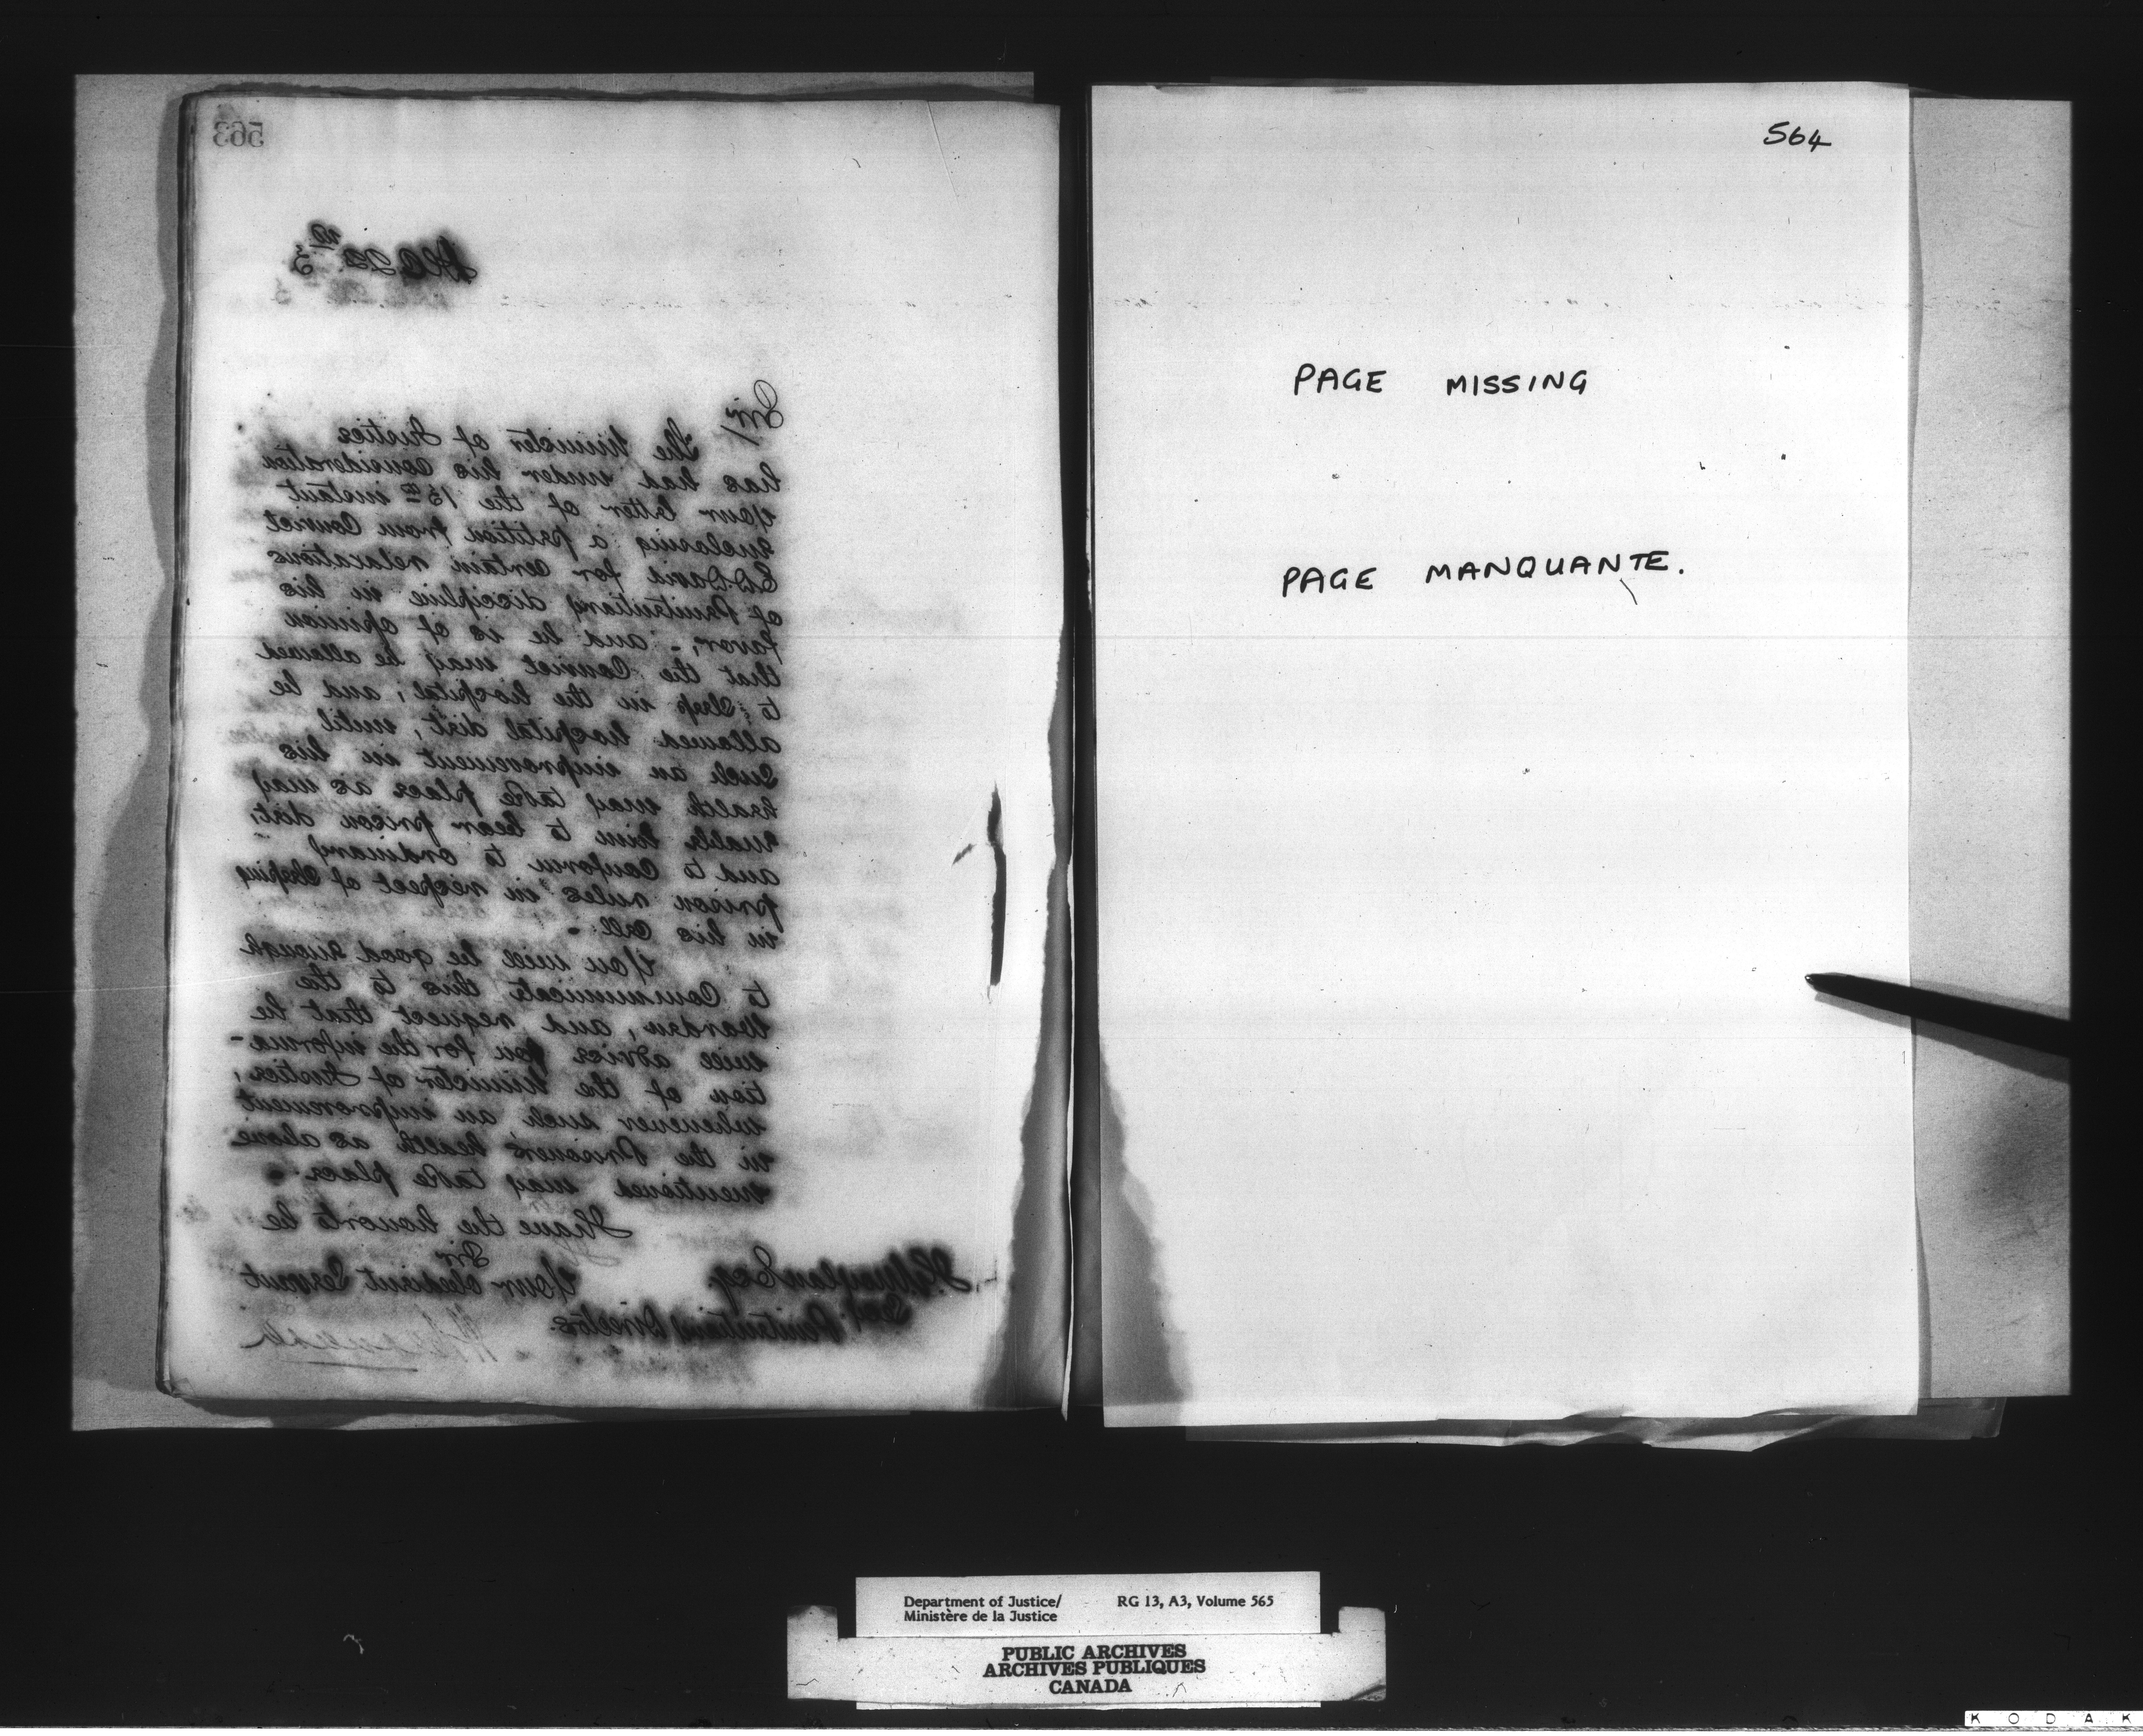 563
Dec 22nd 3
Sir/
The Minister of Justice
has had under his consideration
your letter of the 15th instant
enclosing a petition from Convict
E.D. David for certain relaxations
of Penitentiary discipline in his
favor; - and he is of opinion
that the Convict may be allowed
to sleep in the hospital; and be
allowed hospital diet, until
such an improvement in his
health may take place as may
enable him to bear prison diet;
and to conform to ordinary
prison rules in respect of sleeping
in his Cell. -
You will be good enough
to Communicate this to the
Warden, and, request that he
will advise you for the informa-
tion of the Minister of Justice,
whenever such an improvement
in the Prisoner's health as above
mentioned may take place. -
I have the honor to be
Sir
Your obedient Servant
J.G. Moylan Esq
Secy. Penitentiary Directors
564
PAGE MISSING
PAGE MANQUANTE.
Department of Justice/ RG 13, A3, Volume 565
Ministère de la Justice
PUBLIC ARCHIVES
ARCHIVES PUBLIQUES
CANADA
K O D A K